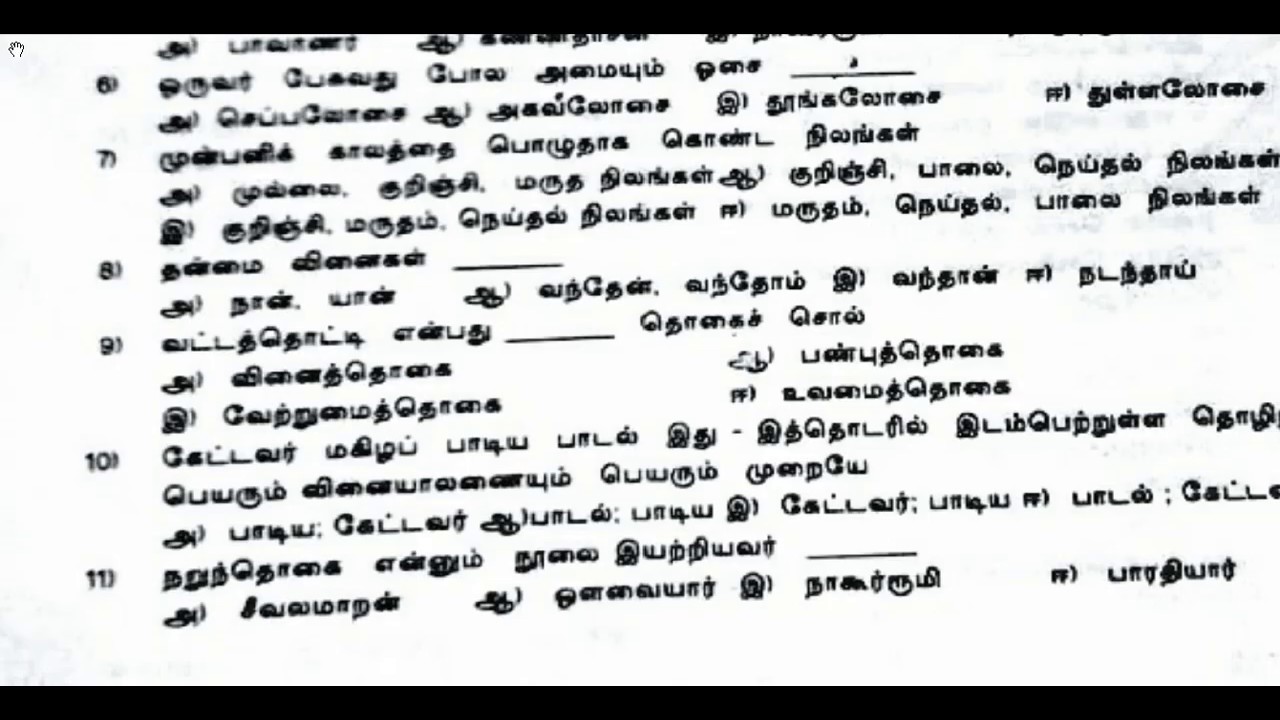 அ) பாவாணர் ஆ) கண்ணதாசன் இ)
6) ஒருவர் பேசுவது போல அமையும் ஓசை ________
அ) செப்பலோசை ஆ) அகவலோசை இ) தூங்கலோசை ஈ) துள்ளலோசை
7) முன்பனிக் காலத்தை பொழுதாக கொண்ட நிலங்கள்
அ) முல்லை, குறிஞ்சி, மருத நிலங்கள் ஆ) குறிஞ்சி, பாலை, நெய்தல் நிலங்கள்
இ) குறிஞ்சி, மருதம், நெய்தல் நிலங்கள் ஈ) மருதம், நெய்தல், பாலை நிலங்கள்
8) தன்மை வினைகள் ________
அ) நான், யான் ஆ) வந்தேன், வந்தோம் இ) வந்தான் ஈ) நடந்தாய்
9) வட்டத்தொட்டி என்பது ________ தொகைச் சொல்
அ) வினைத்தொகை ஆ) பண்புத்தொகை
இ) வேற்றுமைத்தொகை ஈ) உவமைத்தொகை
10) கேட்டவர் மகிழப் பாடிய பாடல் இது - இத்தொடரில் இடம்பெற்றுள்ள
பெயரும் வினையாலணையும் பெயரும் முறையே
அ) பாடிய; கேட்டவர் ஆ)பாடல்; பாடிய இ) கேட்டவர்; பாடிய ஈ) பாடல் ;
11) நறுந்தொகை என்னும் நூலை இயற்றியவர் ________
அ) சீவலமாறன் ஆ) ஔவையார் இ) நாகூர்ரூமி ஈ) பாரதியார்